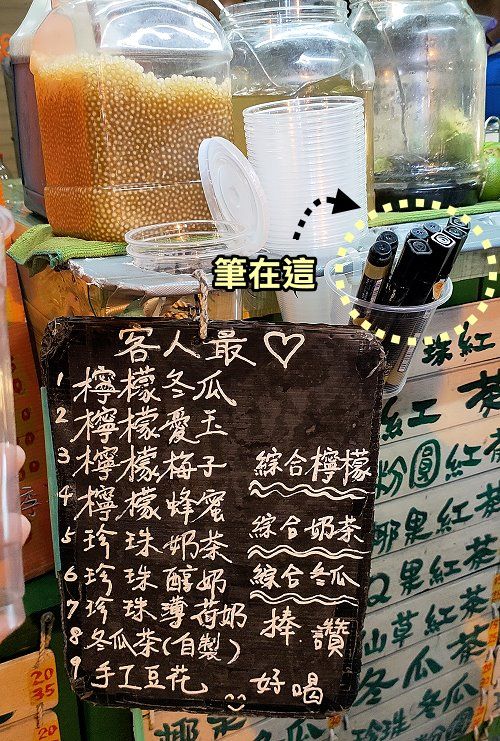 筆在這
客人最♡
1 檸檬冬瓜
2 檸檬愛玉
3 檸檬梅子
4 檸檬蜂蜜
5 珍珠奶茶
6 珍珠醇奶
7 珍珠薄荷奶
8 冬瓜茶(自製)
9 手工豆花
綜合檸檬
綜合奶茶
綜合冬瓜
棒 讚
好喝
珠紅
紅茶
粉圓紅茶
椰果紅茶
QQ果紅茶
仙草紅茶
冬瓜茶
珍珠冬瓜
椰果
20
35